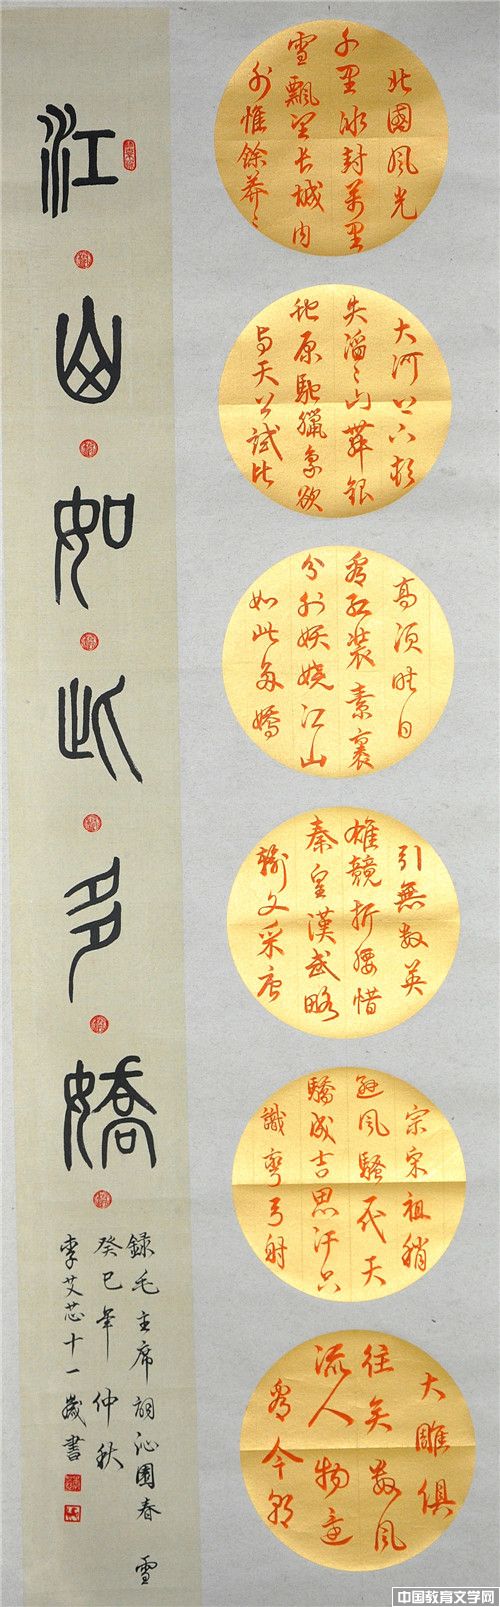 北國風光
千里冰封萬里
雪飄望長城內
外惟餘莽〻
大河上下頓
失滔〻山舞銀
蛇原馳臘象欲
与天公試比
高須晴日
看紅裝素裹
分外妖嬈江山
如此多嬌
引無數英
雄競折腰惜
秦皇漢武略
輸文采唐
宗宋祖稍
遜風騷一代天
驕成吉思汗只
識彎弓射
大雕俱
往矣數風
流人物還
看今朝
江山如此多嬌
錄毛主席詞沁園春 雪
癸巳年仲秋
李艾芯十一歲書
中国教育文学网